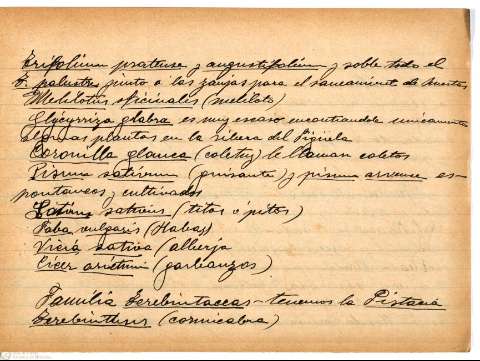 Trifolium pratense y angustifolium y sobre todo el
T. palustre junto a las zanjas para el saneamient de huertas
Melilotus oficinalis (meliloto)
Glycyrriza glabra es muy escaso encontrandole unicamente
algunas plantas en la ribera del
Coronilla glauca (coletuy) le llaman coletos
Pisum sativum (guisante) y pisum arvense es-
pontaneos y cultivados
sativus (titos ó pitos)
Faba vulgaris (Habas)
Vicia sativa (alberja
Cicer arietinu (garbanzos)
Familia Terebintaceas - tenemos la Pistacia
Terebinthus (cornicabra)